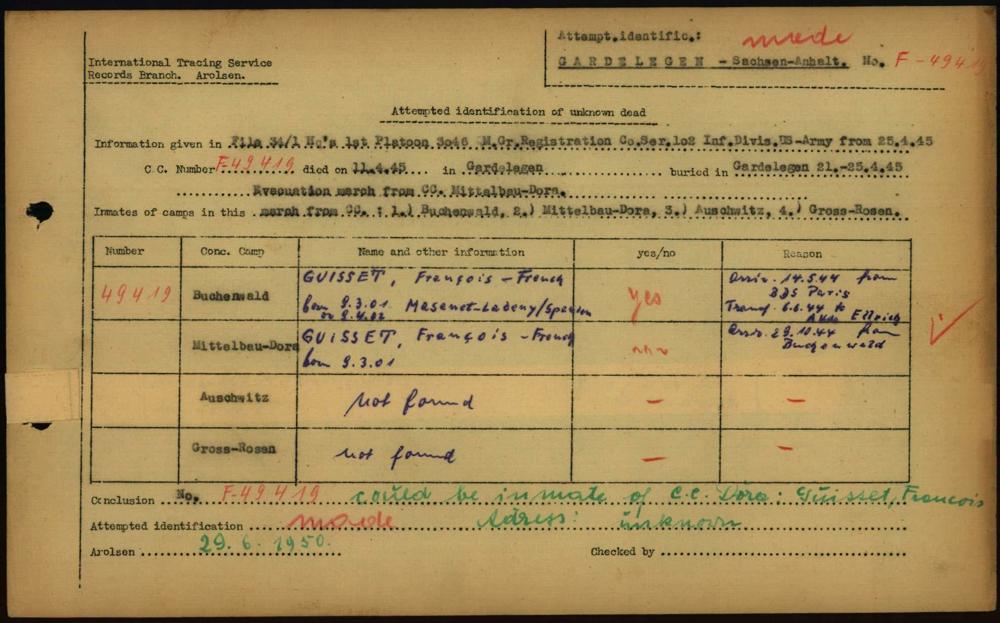 Attempt.identific.: made
International Tracing Service
Records Branch. Arolsen.
GARDELEGEN - Sachsen-Anhalt. No. F-49419
Attempted identification of unknown dead
Information given in File 34/1 No's 1st Platoon 3046 M.Gr.Registration Co.Ser.102 Inf.Divis.US-Army from 25.4.45
C.C. Number F-49419 died on 11.4.45 in Gardelegen buried in Gardelegen 21.-25.4.45
Evacuation march from CC. Mittelbau-Dora.
Inmates of camps in this march from CC. : 1.) Buchenwald, 2.) Mittelbau-Dora, 3.) Auschwitz, 4.) Gross-Rosen.
Number Conc. Camp Name and other information yes/no Reason
49419 Buchenwald GUISSET, François - French yes Arriv. 14.5.44 from
born 9.3.01 or 9.4.02 Paris
Transf. 6.6.44 to Ellrich
Mittelbau-Dora GUISSET, François - French Arr. 29.10.44 from
born 9.3.01 Buchenwald
Auschwitz not found - -
Gross-Rosen not found - -
Conclusion No. F-49419 could be inmate of C.C. Dora: Guisset, Francois
Attempted identification made Adress: unknown
Arolsen 29.6.1950. Checked by